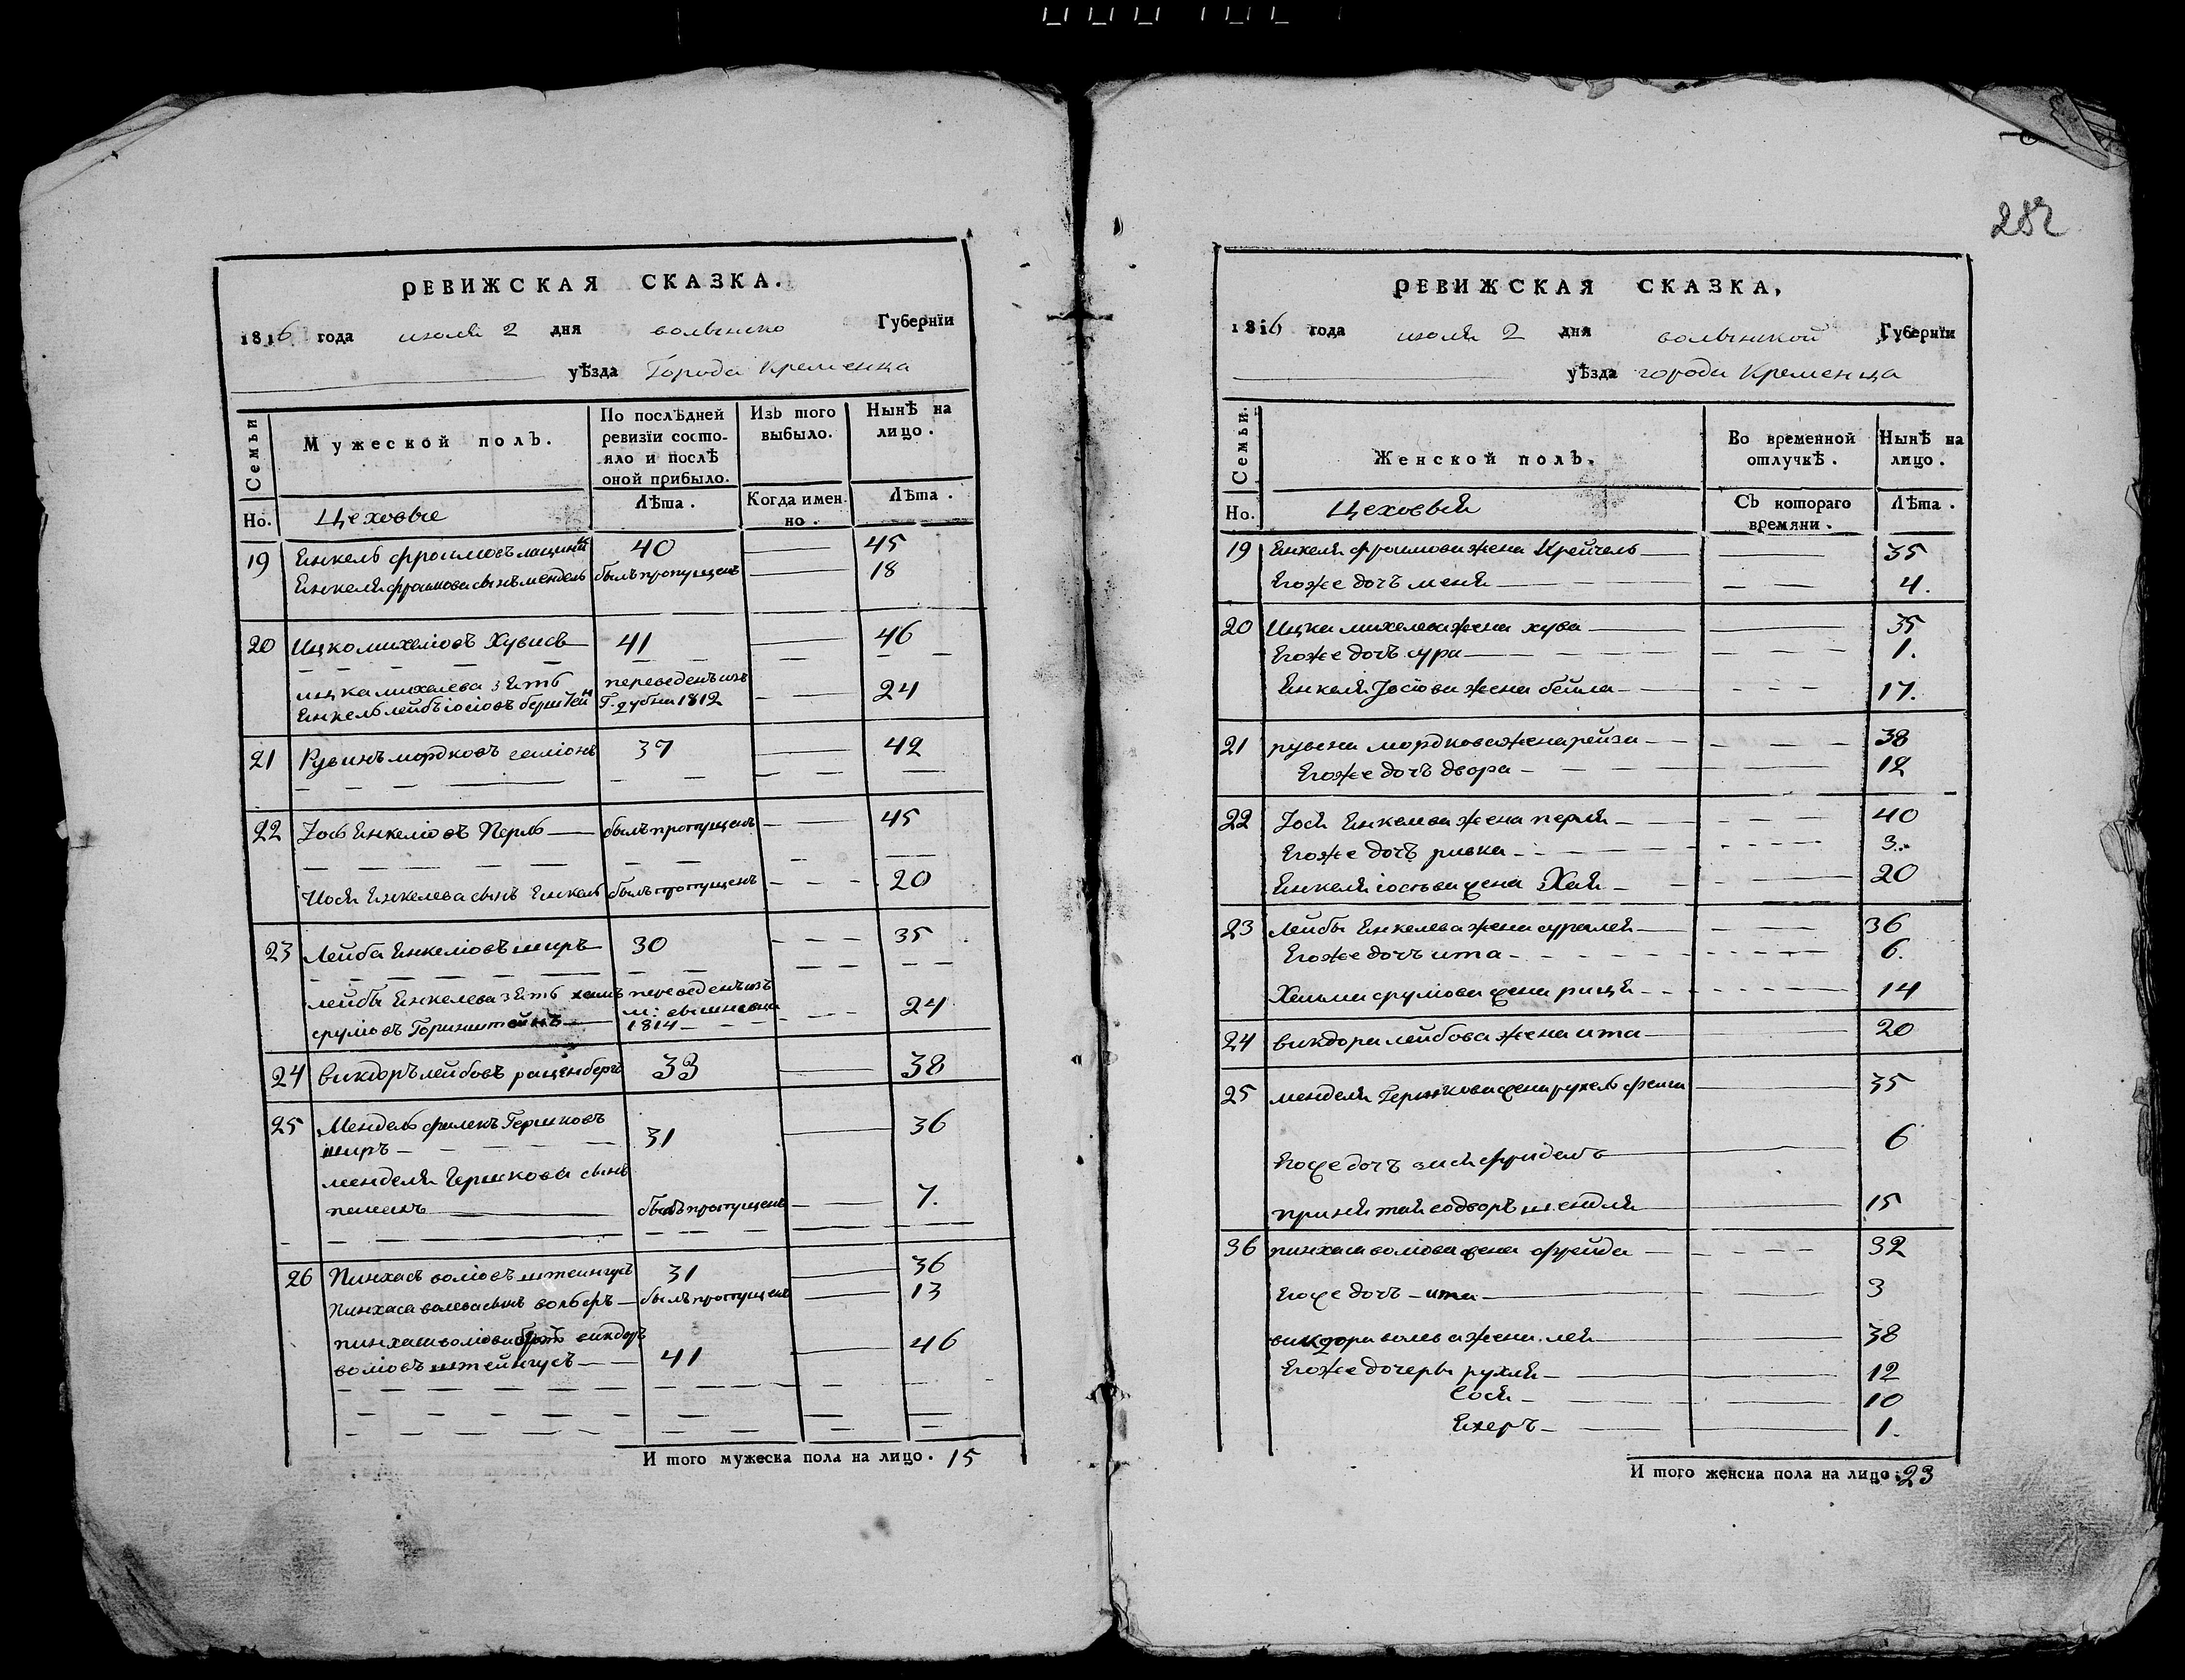 282
РЕВИЖСКАЯ СКАЗКА.
1816 года июля 2 дня волынско Губернїи
уѣзда Города Кременца
Семьи
Мужеской полъ.
По послѣдней ревизїи состояло и послѣ оной прибыло.
Изъ того выбыло.
Нынѣ на лицо.
Но. Цеховые Лѣта. Когда именно. Лѣта.
19 Енкель фроимовъ 40 45
Енкеля фроимова сынъ мендель былъ пропущенъ 18
20 Ицко михеліовъ Хувисъ 41 46
ицка михелева зеть переведенъ изъ
Енкель лейбъ іосіовъ Г. дубна 1812 24
21 Рувинъ мордковъ 37 42
22 Іось Енкеліовъ Перль былъ пропущенъ 45
Иося Енкелева сынъ Енкель былъ пропущенъ 20
23 Лейба Енкеліовъ ширъ 30 35
лейбы Енкелева зеть хаимъ переведенъ изъ
сруліовъ Горинштейнъ 1814 24
24 викдоръ лейбовъ раценбергъ 33 38
25 Мендель филекъ Гершковъ
ширъ 31 36
менделя Гершкова сынъ
былъ пропущенъ 7.
26 Пинхасъ воліовъ штеингусъ 31 36
Пинхаса волева сынъ вольферъ былъ пропущенъ 13
пинхаса воліова братъ викдоръ
воліовъ штейнгусъ 41 46
И того мужеска пола на лицо. 15
РЕВИЖСКАЯ СКАЗКА,
1816 года июля 2 дня волынской Губернїи
уѣзда города Кременца
Семьи.
Женской полъ.
Во временной отлучкѣ.
Нынѣ на лицо.
Но. Цеховыя Съ котораго времяни. Лѣта.
19 Енкеля фроимова жена Крейчель 35
Егоже дочъ меня 4.
20 Ицка михелева жена хува 35
Егоже дочъ сура 1.
Енкеля Іосіова жена бейла 17.
21 рувена мордкова жена рейза 38
Егоже дочъ двора 12
22 Іося Енкелева жена перля 40
Егоже дочъ ривка 3.
Енкеля іосьва жена Хая 20
23 лейбы Енкелева жена сура лея 36
Егоже дочъ ита 6.
Хаима срулюва жена 14
24 викдора лейбова жена ита 20
25 менделя Гершкова жена рухель фейга 35
Егоже дочъ фридель 6
15
36 пинхаса воліова жена фрейда 32
Егоже дочъ ита 3
викдора волева жена лея 38
Егоже дочеры рухля 12
Сося 10
Ехеръ 1.
И того женска пола на лицо. 23